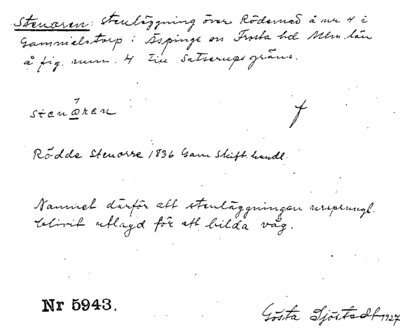 Stenoren: stenläggning över Rödemad å nr 4 i
Gammelstorp i Äspinge sn Frosta hd Mlm. län
å fig. num. 4 till Satserups gräns.
stenøren f
Rödde Stenorre 1836 Gam Skift. handl.
Namnet därför att stenläggningen ursprungl.
blivit utlagd för att bilda väg.
Nr 5943.
Gösta Sjöstedt 1927